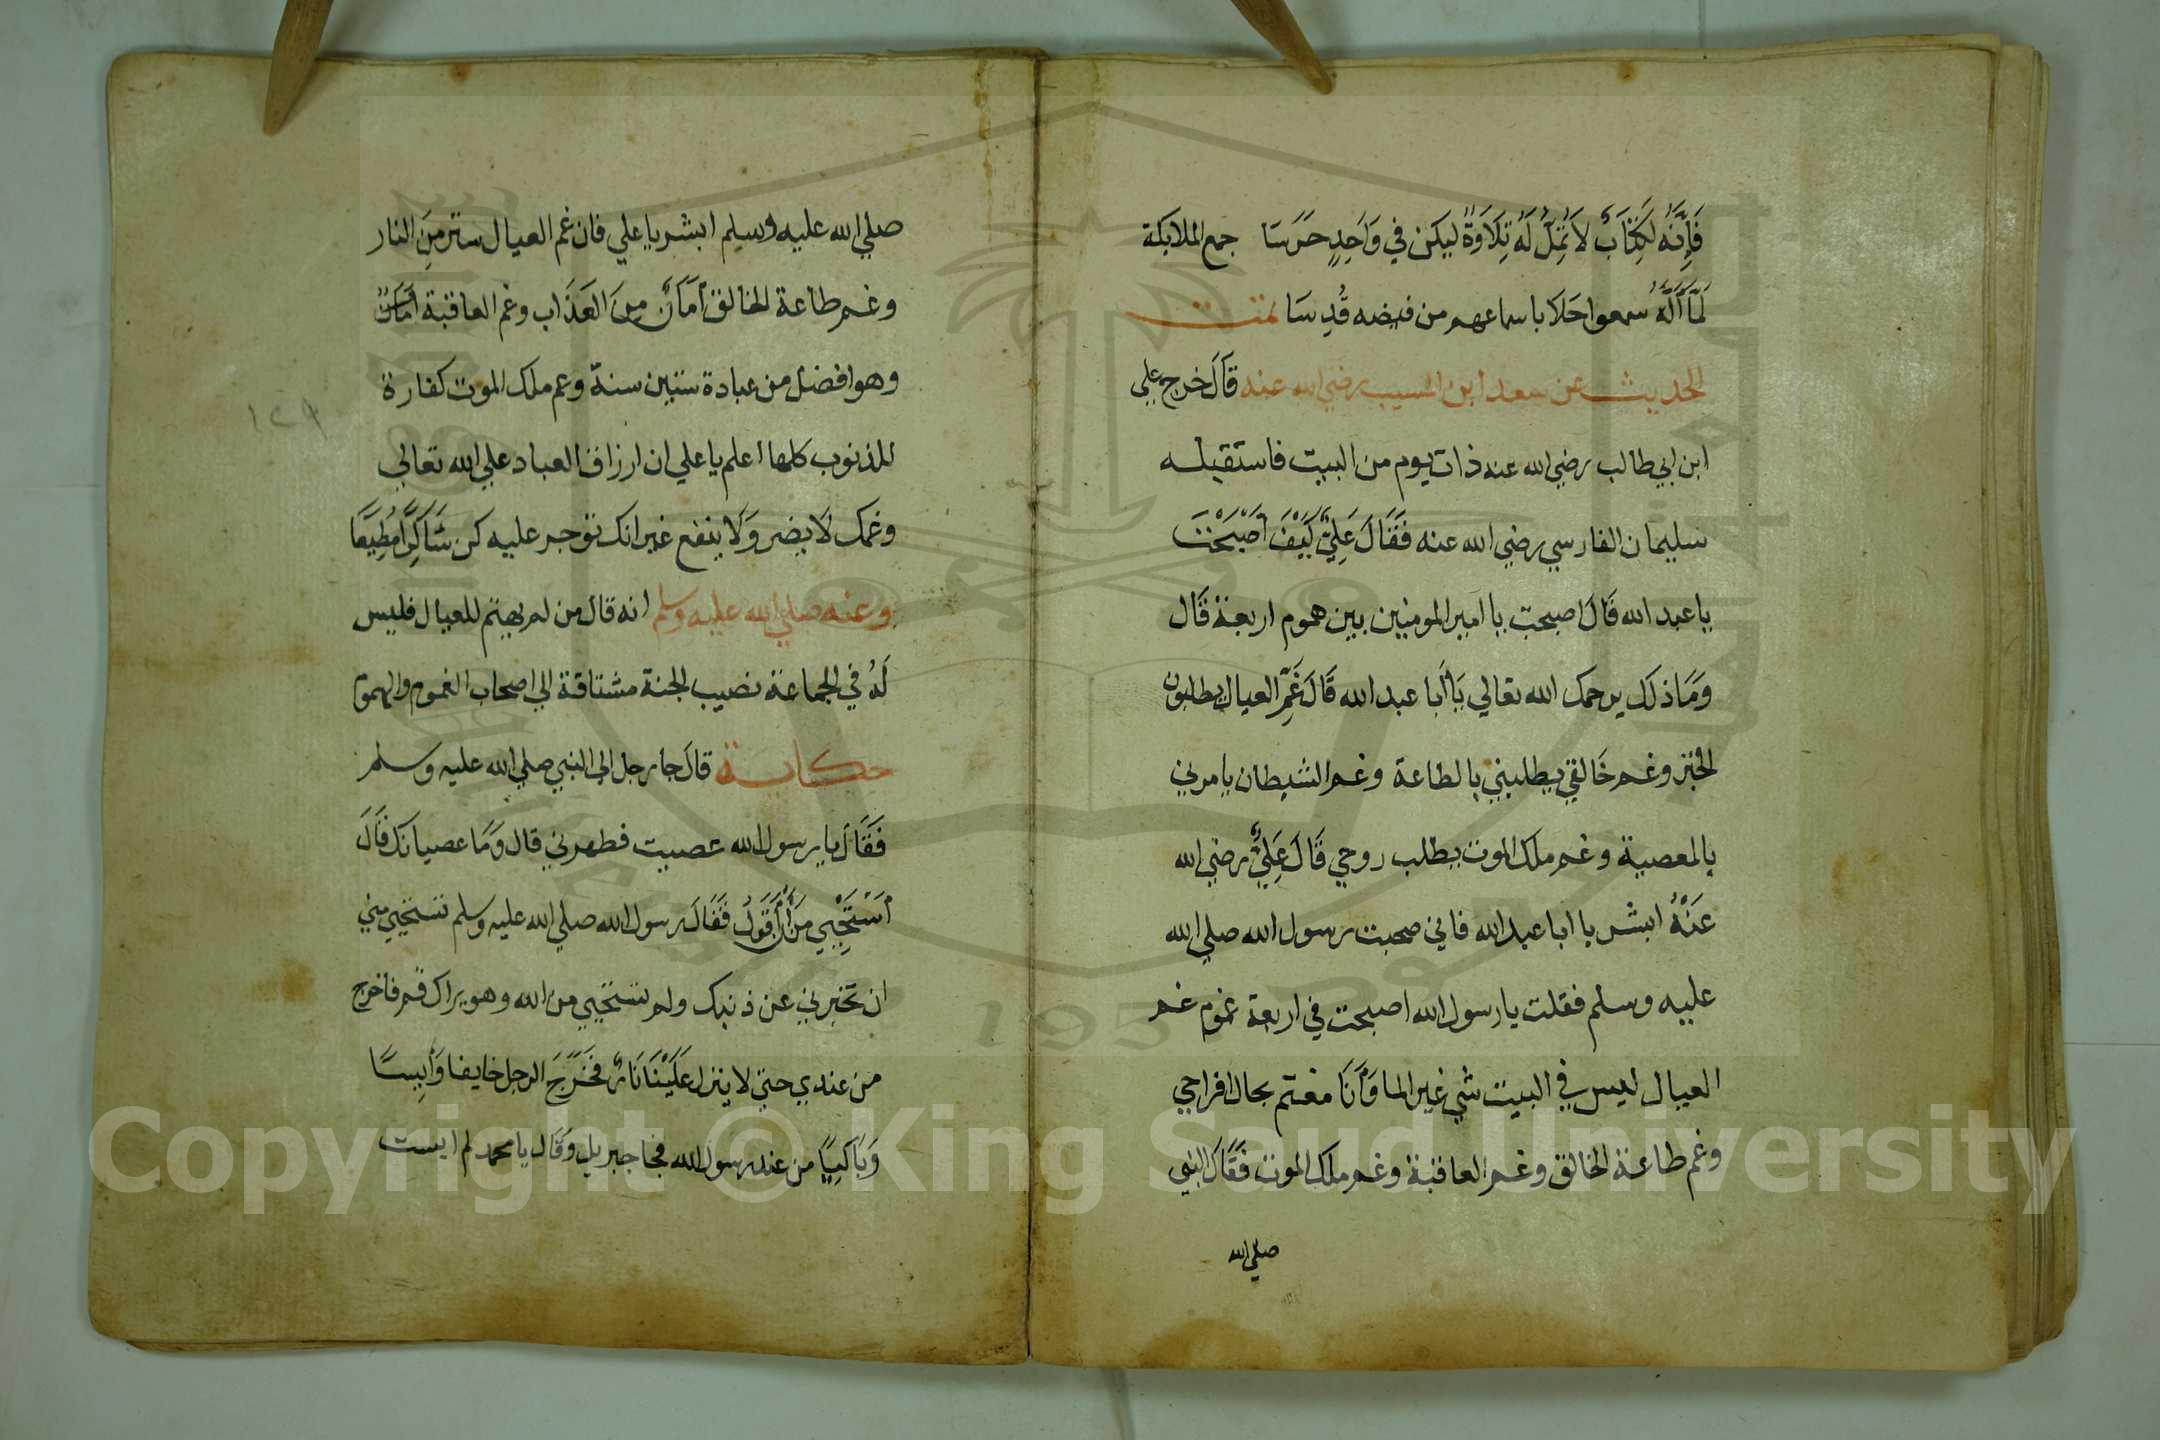 فَإِنَّهُ لَكِتَابٌ لَا تُمَلُّ لَهُ تِلَاوَةٌ ليكن في وَاحِدٍ حَرَسَا جمع الملايكة
لَمَّا أَنَّهُ سمعوا حَلَا باسماعهم من فيضه قُدِسَا تمت
الحديث عن سعد ابن المسيب رضي الله عنه قَالَ خرج علي
ابن ابي طالب رضي الله عنه ذات يوم من البيت فاستقبله
سليمان الفارسي رضي الله عنه فَقَالَ عَلِيٌّ كَيْفَ أَصْبَحْتَ
يا عبد الله قَالَ اصبحت يا امير المومنين بين هموم اربعة قَال
وَمَا ذلك يرحمك الله تعالي يَا أَبا عبد الله قَالَ غَمّ العيال يطلبون
الخبز وغم خَالقي يطلبني بالطاعة وغم الشيطان يامرني
بالمعصية وغم ملك الموت يطلب روحي قَالَ عَلِيٌّ رضي الله
عَنْهُ ابشر يا ابا عبد الله فاني صحبت رسول الله صلي الله
عليه وسلم فقلت يا رسول الله اصبحت في اربعة غموم غم
العيال ليس في البيت شي غير الما وَأَنَا مغتم بحال افراحي
وغم طاعة الخالق وغم العاقبة وغم ملك الموت فَقَالَ النبي
صلي الله
صلي الله عليه وسلم ابشر يا علي فان غم العيال ستر مِنَ النار
وغم طاعة الخالق أَمَانٌ مِنَ العَذَاب وغم العاقبة أَمَانٌ
وهو افضل من عبادة ستين سنة وغم ملك الموت كفارة
للذنوب كلها اعلم يا علي ان ارزاق العباد علي الله تعالي
وغمك لَا يضر وَلَا ينفع غير انك توجر عليه كن شَاكِرًا مُطِيعًا
وعنه صلي الله عليه وسلم انه قال من لم يهتم للعيال فليس
لَهُ في الجماعة نصيب الجنة مشتاقة الي اصحاب الغموم والهموم
حكاية قالَ جا رجل الى النبي صلي الله عليه وسلم
فَقَالَ يا رسول الله عصيت فطهرني قال وَمَا عصيانك قَالَ
أَسْتَحِيي مَنْ أَنْ أَقولُ فَقَالَ رسول الله صلي الله عليه وسلم تستحيي مني
ان تخبرني عن ذنبك ولم تستحيي من الله وهو يراك قم فاخرج
من عندي حتي لا ينزل عَلَيْنَا نَارٌ فَخَرَجَ الرجل خايفا وَأيسًا
وَبَاكيًا من عند رسول الله فجا جبريل وَقَال يا محمد لم ايست
١٢٩
Copyright © King Saud University
1957